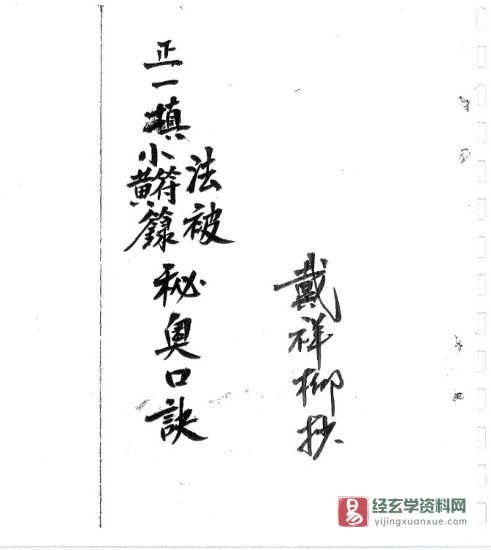 正一填
法被
小黄符籙
秘奥口訣
戴祥柳抄
易
经玄学资料网
yijingxuanxue.com